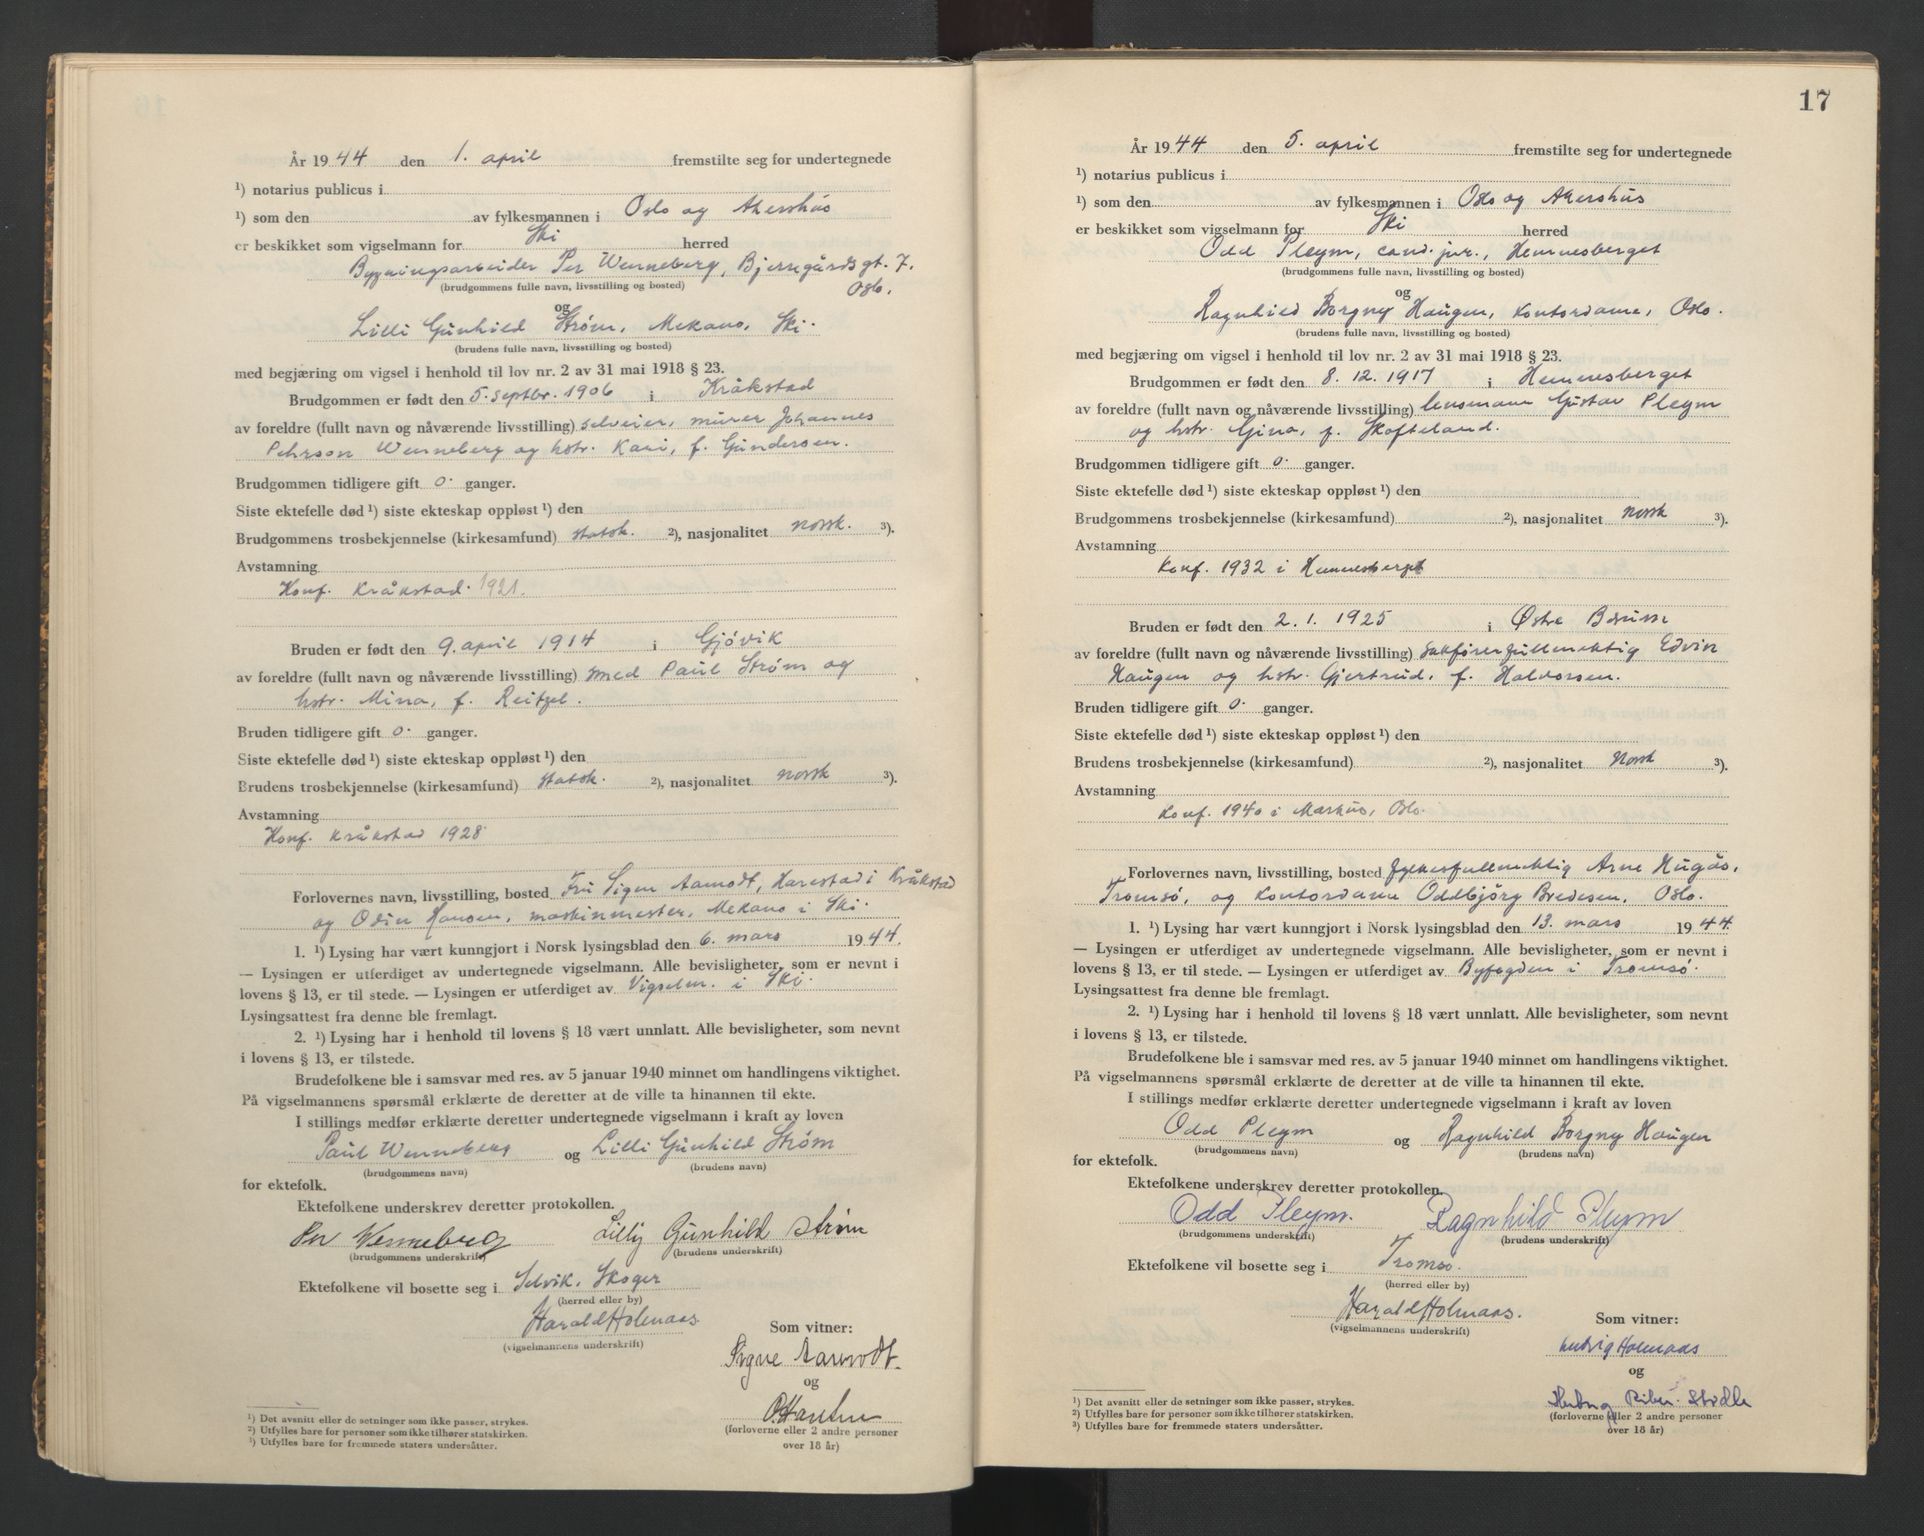 År 1944 den 1. april fremstilte seg for undertegnede
¹) notarius publicus i
¹) som den av fylkesmannen i Oslo og Akershus
er beskikket som vigselmann for Ski herred
Bygningsarbeider Per Wenneberg, Bjerregårdsgt. 7.
(brudgommens fulle navn, livsstilling og bosted) Oslo.
og
Lilli Gunhild Strøm, Mekano, Ski.
(brudens fulle navn, livsstilling og bosted)
med begjæring om vigsel i henhold til lov nr. 2 av 31 mai 1918 § 23.
Brudgommen er født den 5. septbr. 1906 i Kråkstad
av foreldre (fullt navn og nåværende livsstilling) selveier, murer Johannes
Pehrson Wenneberg og hstr. Kari, f. Gundersen.
Brudgommen tidligere gift 0. ganger.
Siste ektefelle død ¹) siste ekteskap oppløst ¹) den
Brudgommens trosbekjennelse (kirkesamfund) statsk. ²), nasjonalitet norsk. ³).
Avstamning
Konf. Kråkstad. 1921.
Bruden er født den 9. april 1914 i Gjøvik
av foreldre (fullt navn og nåværende livsstilling) smed Paul Strøm og
hstr. Mina, f. Reitzel.
Bruden tidligere gift 0. ganger.
Siste ektefelle død ¹) siste ekteskap oppløst ¹) den
Brudens trosbekjennelse (kirkesamfund) statsk. ²), nasjonalitet norsk ³).
Avstamning
Konf. Kråkstad 1928.
Forlovernes navn, livsstilling, bosted Fru Signe Aamodt, Harestad i Kråkstad
og Odin Hansen, maskinmester, Mekano i Ski.
1. ¹) Lysing har vært kunngjort i Norsk lysingsblad den 6. mars 1944.
— Lysingen er utferdiget av undertegnede vigselmann. Alle bevisligheter, som er nevnt i
lovens § 13, er til stede. — Lysingen er utferdiget av Vigselm. i Ski.
Lysingsattest fra denne ble fremlagt.
2. ¹) Lysing har i henhold til lovens § 18 vært unnlatt. Alle bevisligheter, som nevnt
i lovens § 13, er tilstede.
Brudefolkene ble i samsvar med res. av 5 januar 1940 minnet om handlingens viktighet.
På vigselmannens spørsmål erklærte de deretter at de ville ta hinannen til ekte.
I stillings medfør erklærte deretter undertegnede vigselmann i kraft av loven
Paul Wenneberg og Lilli Gunhild Strøm
(brudgommens navn) (brudens navn)
for ektefolk.
Ektefolkene underskrev deretter protokollen.
Per Wenneberg Lilly Gunhild Strøm
(brudgommens underskrift) (brudens underskrift)
Ektefolkene vil bosette seg i Selvik, Skoger
(herred eller by)
Harald Holmaas.
(vigselmannens underskrift)
Som vitner:
Signe Aamodt.
og
O. Hansen
(forloverne eller 2 andre personer
over 18 år)
¹) Det avsnitt eller de setninger som ikke passer, strykes.
²) Utfylles bare for personer som ikke tilhører statskirken.
³) Utfylles bare for fremmede staters undersåtter.
17
År 1944 den 5. april fremstilte seg for undertegnede
¹) notarius publicus i
¹) som den av fylkesmannen i Oslo og Akershus
er beskikket som vigselmann for Ski herred
Odd Pleym, cand. jur., Hemnesberget
(brudgommens fulle navn, livsstilling og bosted)
og
Ragnhild Borgny Haugen, kontordame, Oslo.
(brudens fulle navn, livsstilling og bosted)
med begjæring om vigsel i henhold til lov nr. 2 av 31 mai 1918 § 23.
Brudgommen er født den 8. 12. 1917 i Hemnesberget
av foreldre (fullt navn og nåværende livsstilling) lensmann Gustav Pleym
og hstr. Gina, f. Skofteland.
Brudgommen tidligere gift 0. ganger.
Siste ektefelle død ¹) siste ekteskap oppløst ¹) den
Brudgommens trosbekjennelse (kirkesamfund) ²), nasjonalitet norsk ³).
Avstamning
Konf. 1932 i Hemnesberget
Bruden er født den 2. 1. 1925 i Østre
av foreldre (fullt navn og nåværende livsstilling) sakførerfullmektig Edvin
Haugen og hstr. Gjertrud, f. Halvorsen.
Bruden tidligere gift 0. ganger.
Siste ektefelle død ¹) siste ekteskap oppløst ¹) den
Brudens trosbekjennelse (kirkesamfund) ²), nasjonalitet Norsk ³).
Avstamning
Konf. 1940 i Markus, Oslo.
Forlovernes navn, livsstilling, bosted fylkesfullmektig Arne Hugås,
Tromsø, og kontordame Oddbjörg Bredesen, Oslo.
1. ¹) Lysing har vært kunngjort i Norsk lysingsblad den 13. mars 1944.
— Lysingen er utferdiget av undertegnede vigselmann. Alle bevisligheter, som er nevnt i
lovens § 13, er til stede. — Lysingen er utferdiget av Byfogden i Tromsö.
Lysingsattest fra denne ble fremlagt.
2. ¹) Lysing har i henhold til lovens § 18 vært unnlatt. Alle bevisligheter, som nevnt
i lovens § 13, er tilstede.
Brudefolkene ble i samsvar med res. av 5 januar 1940 minnet om handlingens viktighet.
På vigselmannens spørsmål erklærte de deretter at de ville ta hinannen til ekte.
I stillings medfør erklærte deretter undertegnede vigselmann i kraft av loven
Odd Pleym og Ragnhild Borgny Haugen
(brudgommens navn) (brudens navn)
for ektefolk.
Ektefolkene underskrev deretter protokollen.
Odd Pleym. Ragnhild Pleym
(brudgommens underskrift) (brudens underskrift)
Ektefolkene vil bosette seg i Tromsø.
(herred eller by)
Harald Holmaas.
(vigselmannens underskrift)
Som vitner:
Ludvig Holmaas
og
(forloverne eller 2 andre personer
over 18 år)
¹) Det avsnitt eller de setninger som ikke passer, strykes.
²) Utfylles bare for personer som ikke tilhører statskirken.
³) Utfylles bare for fremmede staters undersåtter.